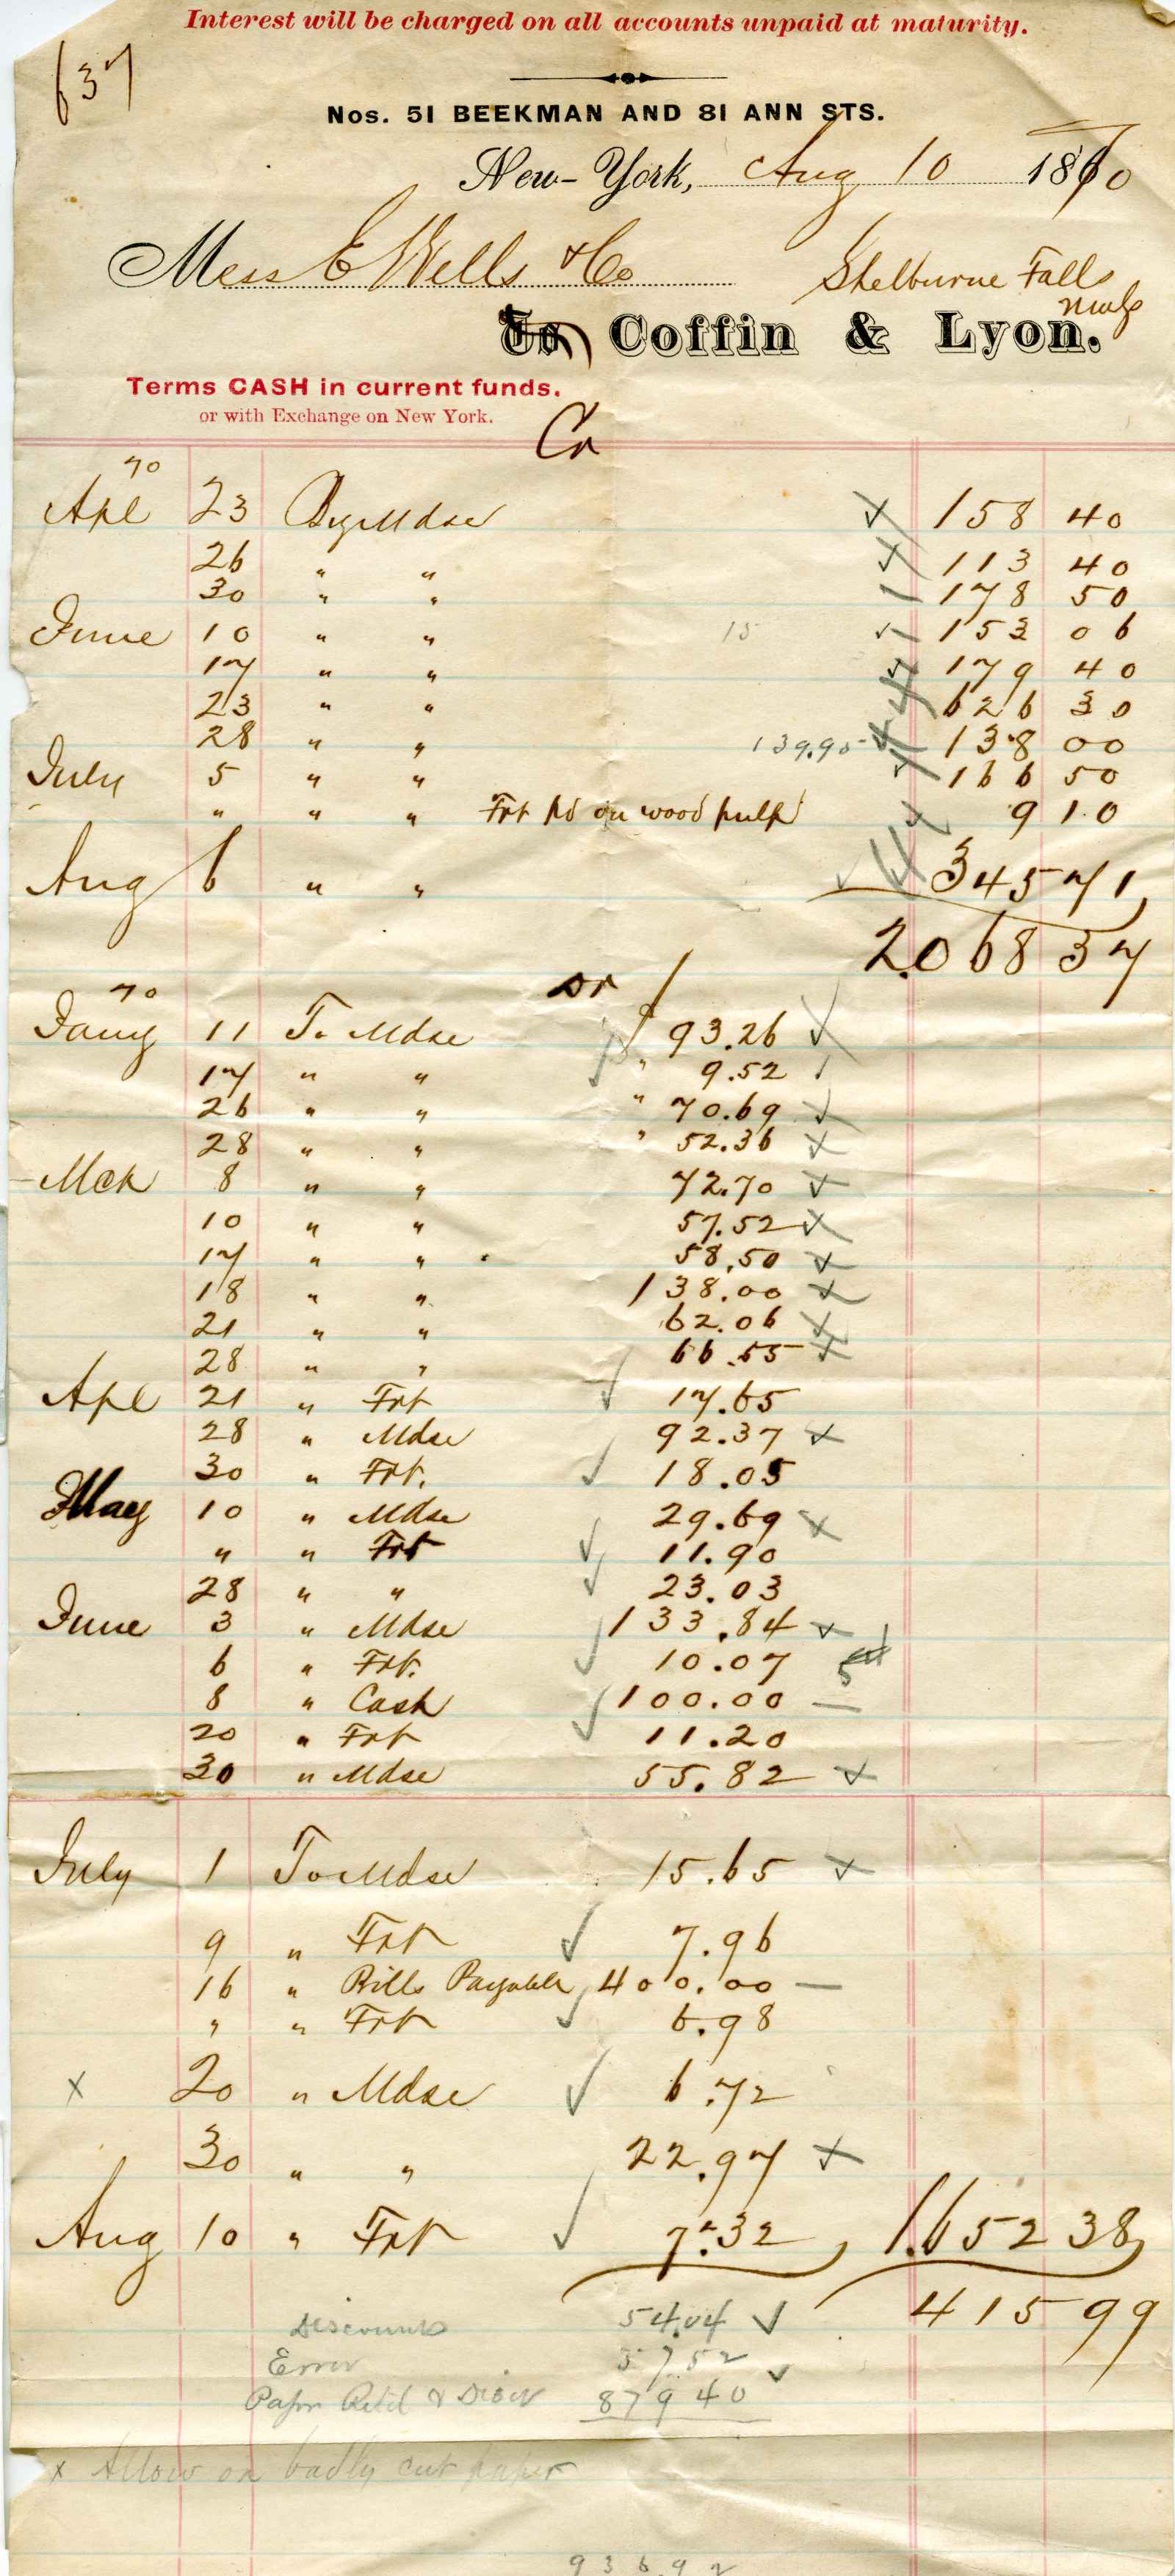 Interest will be charged on all accounts unpaid at maturity.
637
Nos. 51 BEEKMAN AND 81 ANN STS.
New-York, Aug 10 1870
Mess E Wells & Co Shelburne Falls
To Coffin & Lyon.
Terms CASH in current funds.
or with Exchange on New York.
Cr
70
Apl 23 By Mdse 158 40
26 " " 113 40
30 " " 178 50
June 10 " " 15 153 06
17 " " 179 40
23 " " 626 30
28 " " 139.95 138 00
July 5 " " 166 50
" " " Frt pd on wood pulp 9 10
Aug 6 " " 345 71
2.068 37
Dr
70
Jany 11 To Mdse $ 93.26
17 " " " 9.52
26 " " " 70.69
28 " " " 52.36
Mch 8 " " 72.70
10 " " 57.52
17 " " 58.50
18 " " 138.00
21 " " 62.06
28 " " 66.55
Apl 21 " Frt 17.65
28 " Mdse 92.37
30 " Frt. 18.05
May 10 " Mdse 29.69
" " Frt 11.90
28 " " 23.03
June 3 " Mdse 133.84
6 " Frt. 10.07
8 " Cash 100.00
20 " Frt 11.20
30 " Mdse 55.82
July 1 To Mdse 15.65
9 " Frt 7.96
16 " Bills Payable 400.00
" " Frt 6.98
x 20 " Mdse 6.72
30 " " 22.97
Aug 10 " Frt 7.32 1.652 38
415 99
Discounts 54.04
Error 57 52
Paper Retd & Disct 879 40
x Allow on badly cut paper
936.92